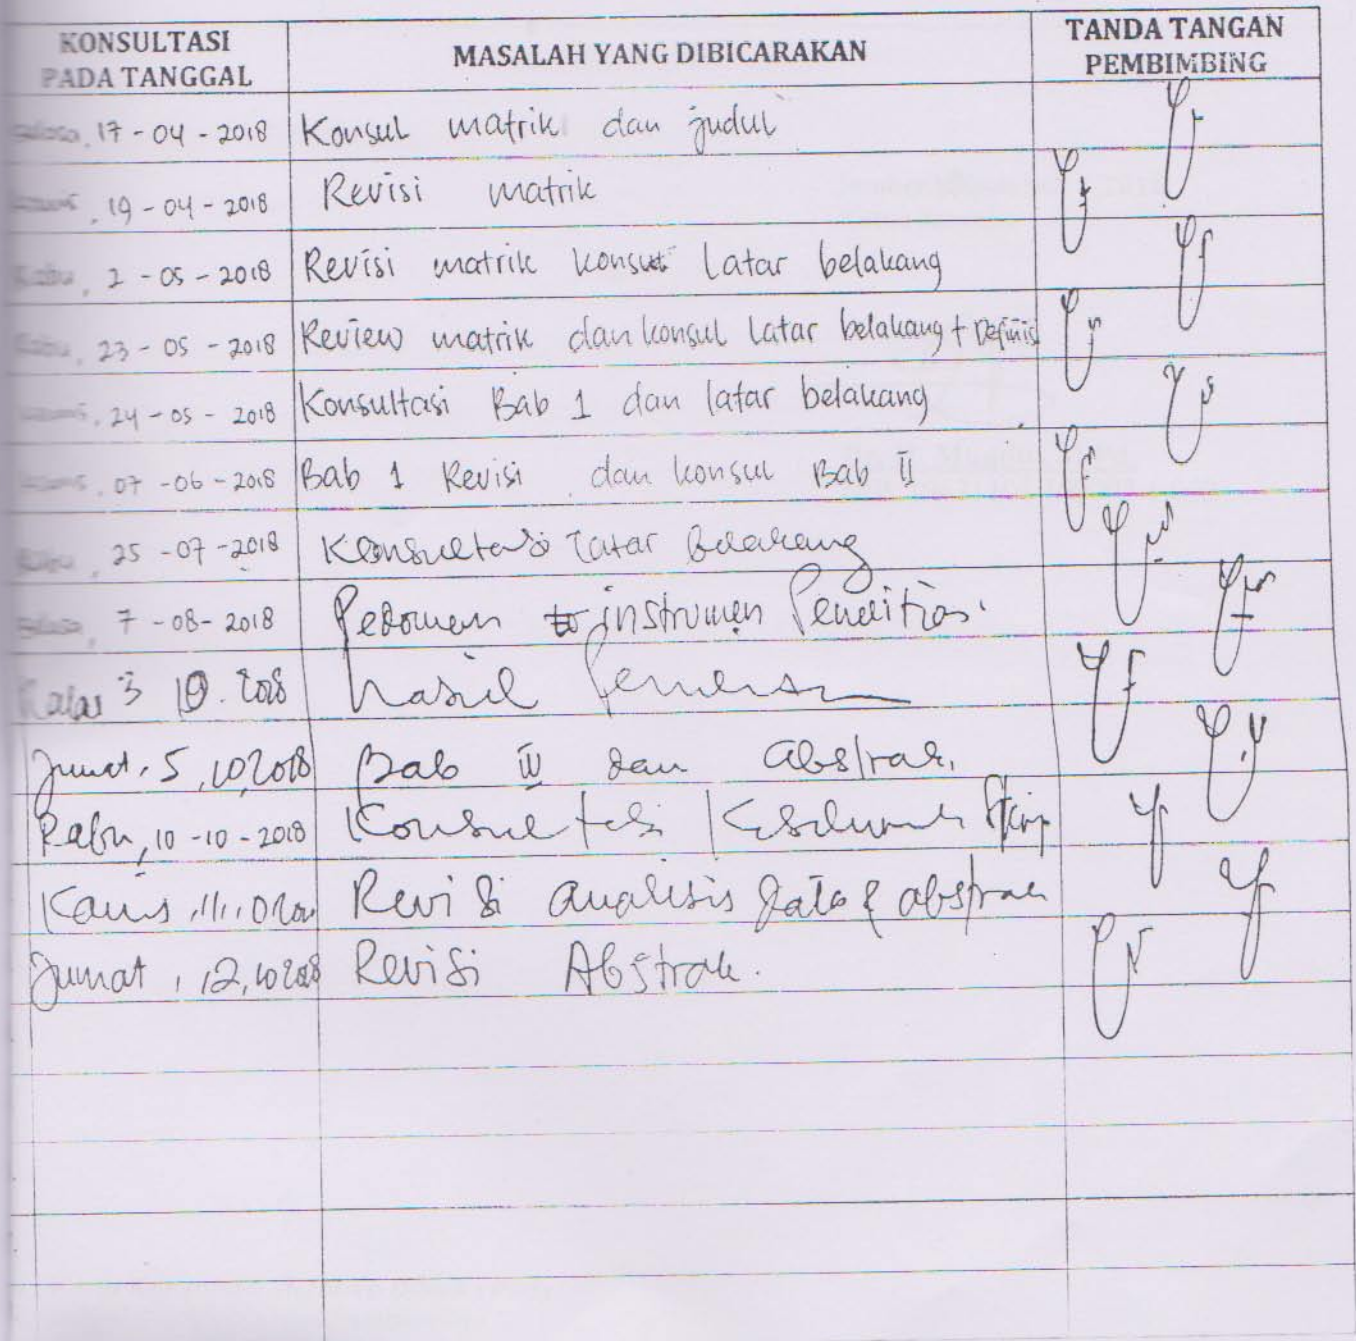 KONSULTASI PADA TANGGAL
MASALAH YANG DIBICARAKAN
TANDA TANGAN PEMBIMBING
17-04-2018 Konsul matrik dan judul
19-04-2018 Revisi matrik
Rabu, 2-05-2018 Revisi matrik konsul Latar belakang
Rabu, 23-05-2018 Review matrik dan konsul Latar belakang + Definis
24-05-2018 Konsultasi Bab 1 dan latar belakang
07-06-2018 Bab 1 Revisi dan konsul Bab II
25-07-2018 Konsultasi Latar Belakang
7-08-2018 Pedoman instrumen Penelitian
3 10. 2018 Hasil
Jumat, 5, 10, 2018 Bab dan abstrak.
Rabu, 10-10-2018 Konsultasi
Kamis Revisi analisis data & abstrak
Jumat, 12, 10 2018 Revisi Abstrak.